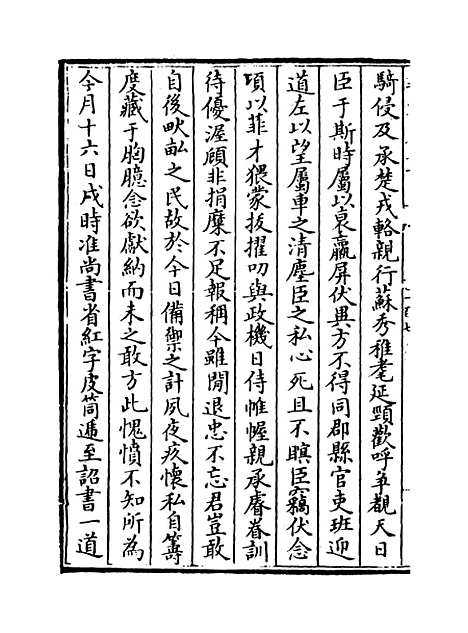 騎侵及承楚戎輅親行蘇秀稚耄延頸歡呼爭觀天日
臣于斯時屬以衰羸屏伏異方不得同郡縣官吏班迎
道左以望屬車之清塵臣之私心死且不瞑臣竊伏念
頃以菲才猥蒙拔擢叨與政機日侍帷幄親承睿眷訓
待優渥顧非捐糜不足報稱今雖閒退忠不忘君豈敢
自後畎畝之民故於今日備禦之計夙夜疚懷私自籌
度藏于胸臆念欲獻納而未之敢方此愧憤不知所為
今月十六日戌時准尚書省紅字皮筒遞至詔書一道